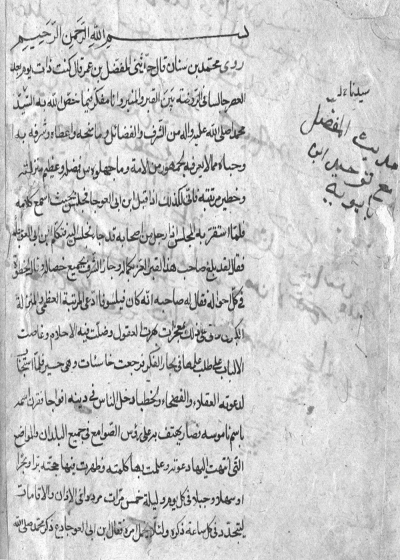 بسم الله الرحمن الرحيم
روى محمد بن سنان قال حدثنى المفضل بن عمر قال كنت ذات يوم بعد
العصر جالسا فى الروضة بين القبر والمنبر وانا مفكر فيما خص الله به السيد
محمد صلى الله عليه واله من الشرف والفضائل وما منحه واعطاه وشرفه به
وحباه مما لا يعرفه الجمهور من الامة وما جهلوه من فضله وعظيم منزلته
وخطير مرتبته فانى لكذلك اذ اقبل ابن ابى العوجا فجلس بحيث اسمع كلامه
فلما استقر به المجلس اذا رجل من اصحابه قد جا فجلس اليه فتكلم ابن ابى العوجا
فقال لقد بلغ صاحب هذا القبر العز بكماله وحاز الشرف بجميع خصاله ونال الحظوة
فى كل احواله فقال له صاحبه انه كان فيلسوفا ادعى المرتبة العظمى والمنزلة
الكبرى واتى على ذلك بمعجزات بهرت العقول وضلت فيه الاحلام وغاصت
الالباب على طلب علمها فى بحار الفكر فرجعت خاسئات وهى حسير فلما استجاب
لدعوته العقلاء والفصحاء والخطباء دخل الناس فى دينه افواجا فقرن اسمه
باسم ناموسه فصار يهتف به على رؤس الصوامع فى جميع البلدان والمواضع
التى انتهت اليها دعوته وعلت بها كلمته وظهرت فيها حجته برا وبحرا
وسهلا وجبلا فى كل يوم وليلة خمس مرات مرددا فى الاذان والاقامة
ليتجدد فى كل ساعة ذكره ولئلا يخمل امره فقال ابن ابى العوجا دع ذكر محمد صلى الله
حديث المفضل
مع توحيد ابن
بابويه